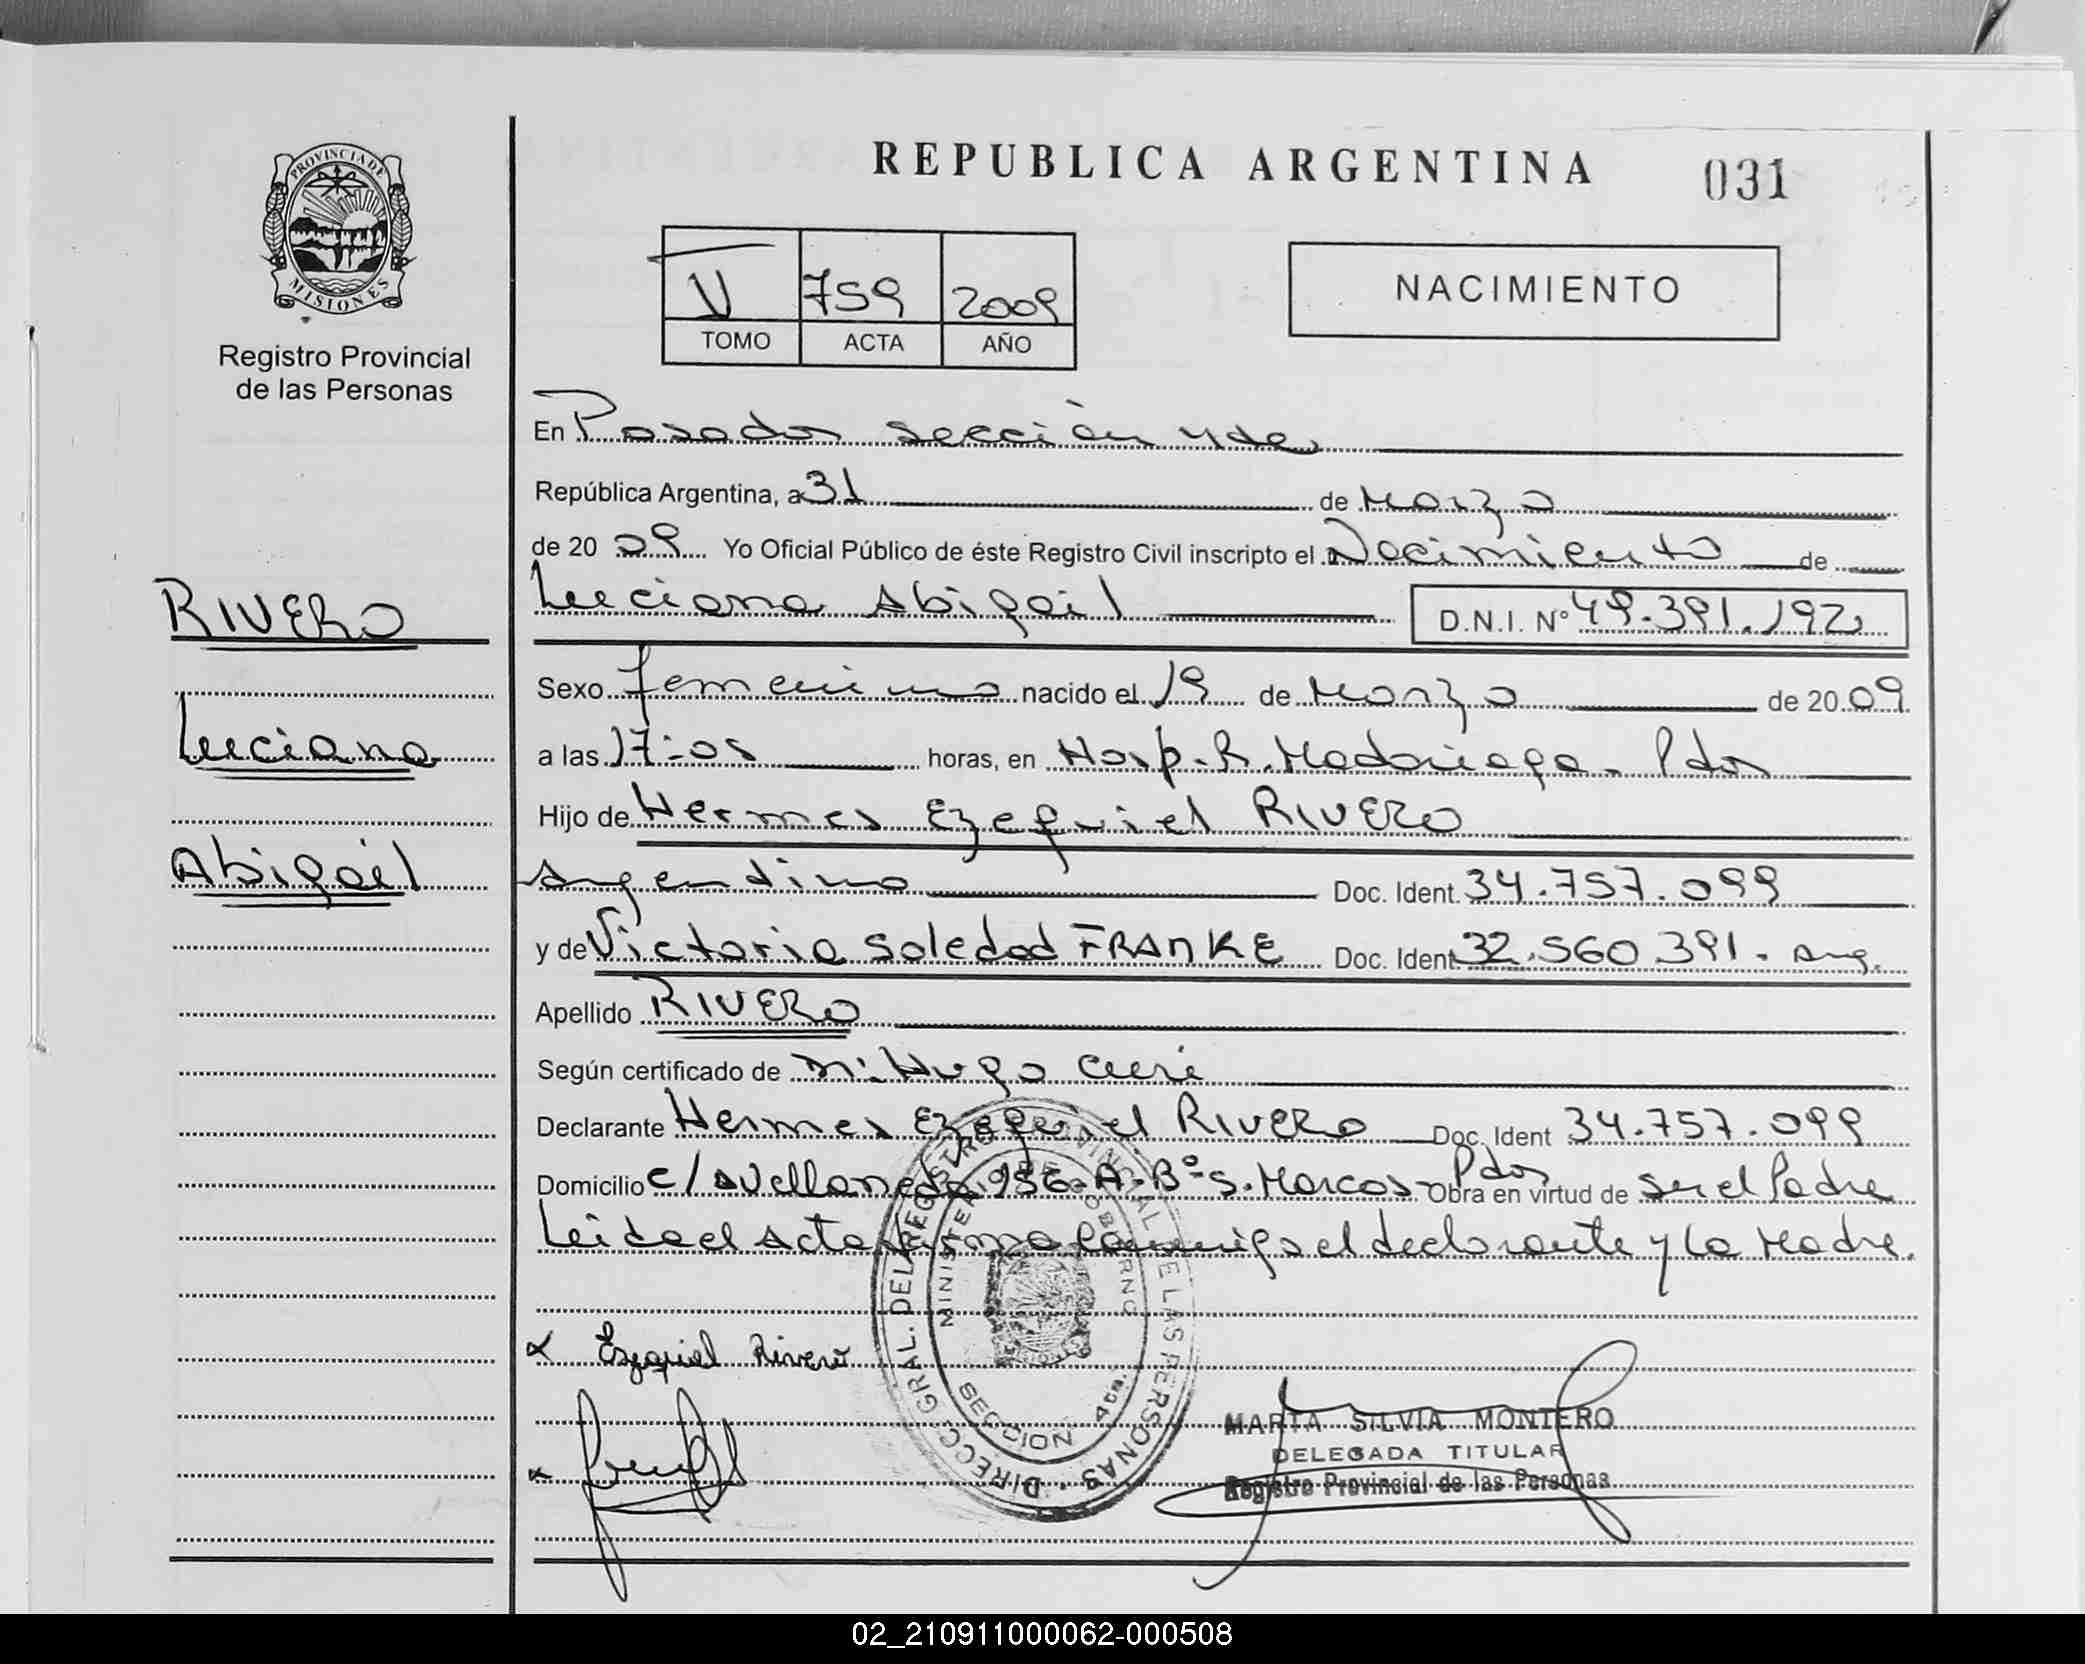 REPUBLICA ARGENTINA
031
PROVINCIA DE MISIONES
Registro Provincial
de las Personas
V 759 2009
TOMO ACTA AÑO
NACIMIENTO
En Posadas sección 4ta
República Argentina, a 31 de Marzo
de 20 09 Yo Oficial Público de éste Registro Civil inscripto el Nacimiento de
Luciana Abigail D.N.I. Nº 49.391.192
RIVERO
Luciana
Abigail
Sexo femenino nacido el 19 de Marzo de 20 09
a las 17:05 horas, en Hosp. R. Madariaga - Pdas
Hijo de Hermes Ezequiel RIVERO
Argentino Doc. Ident. 34.757.099
y de Victoria Soledad FRANKE Doc. Ident. 32.560.391. Arg.
Apellido RIVERO
Según certificado de Hugo
Declarante Hermes Ezequiel RIVERO Doc. Ident 34.757.099
Domicilio c/ Avellaneda 956-A-Bº S. Marcos - Pdas Obra en virtud de ser el Padre
Leida el Acta firma conmigo el declarante y la Madre.
Ezequiel Rivero
DIRECC. GRAL. DEL REGISTRO PROVINCIAL DE LAS PERSONAS
MINISTERIO DE GOBIERNO
SECCION 4ta.
MARTA SILVIA MONTERO
DELEGADA TITULAR
Registro Provincial de las Personas
02_210911000062-000508